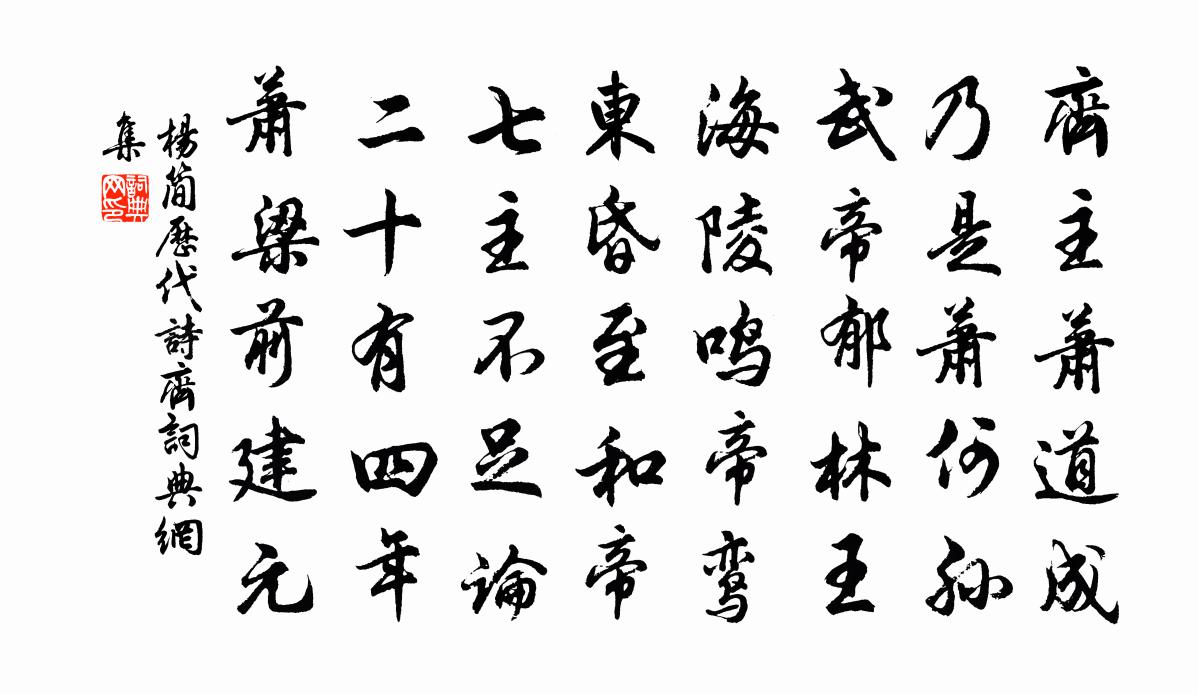 齊主蕭道成
乃是蕭何孫
武帝郁林王
海陵鸣帝鸾
東昏至和帝
七主不足論
二十有四年
蕭梁前建元
楊简歷代詩齊詞典網
集
詞典
网印